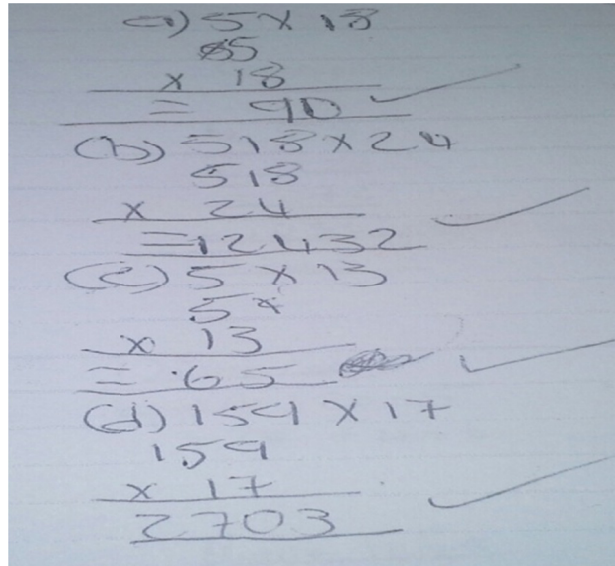 a) 5 x 18
5
x 18
= 90
(b) 518 x 24
518
x 24
= 12432
(c) 5 x 13
5
x 13
= 65
(d) 159 x 17
159
x 17
2703